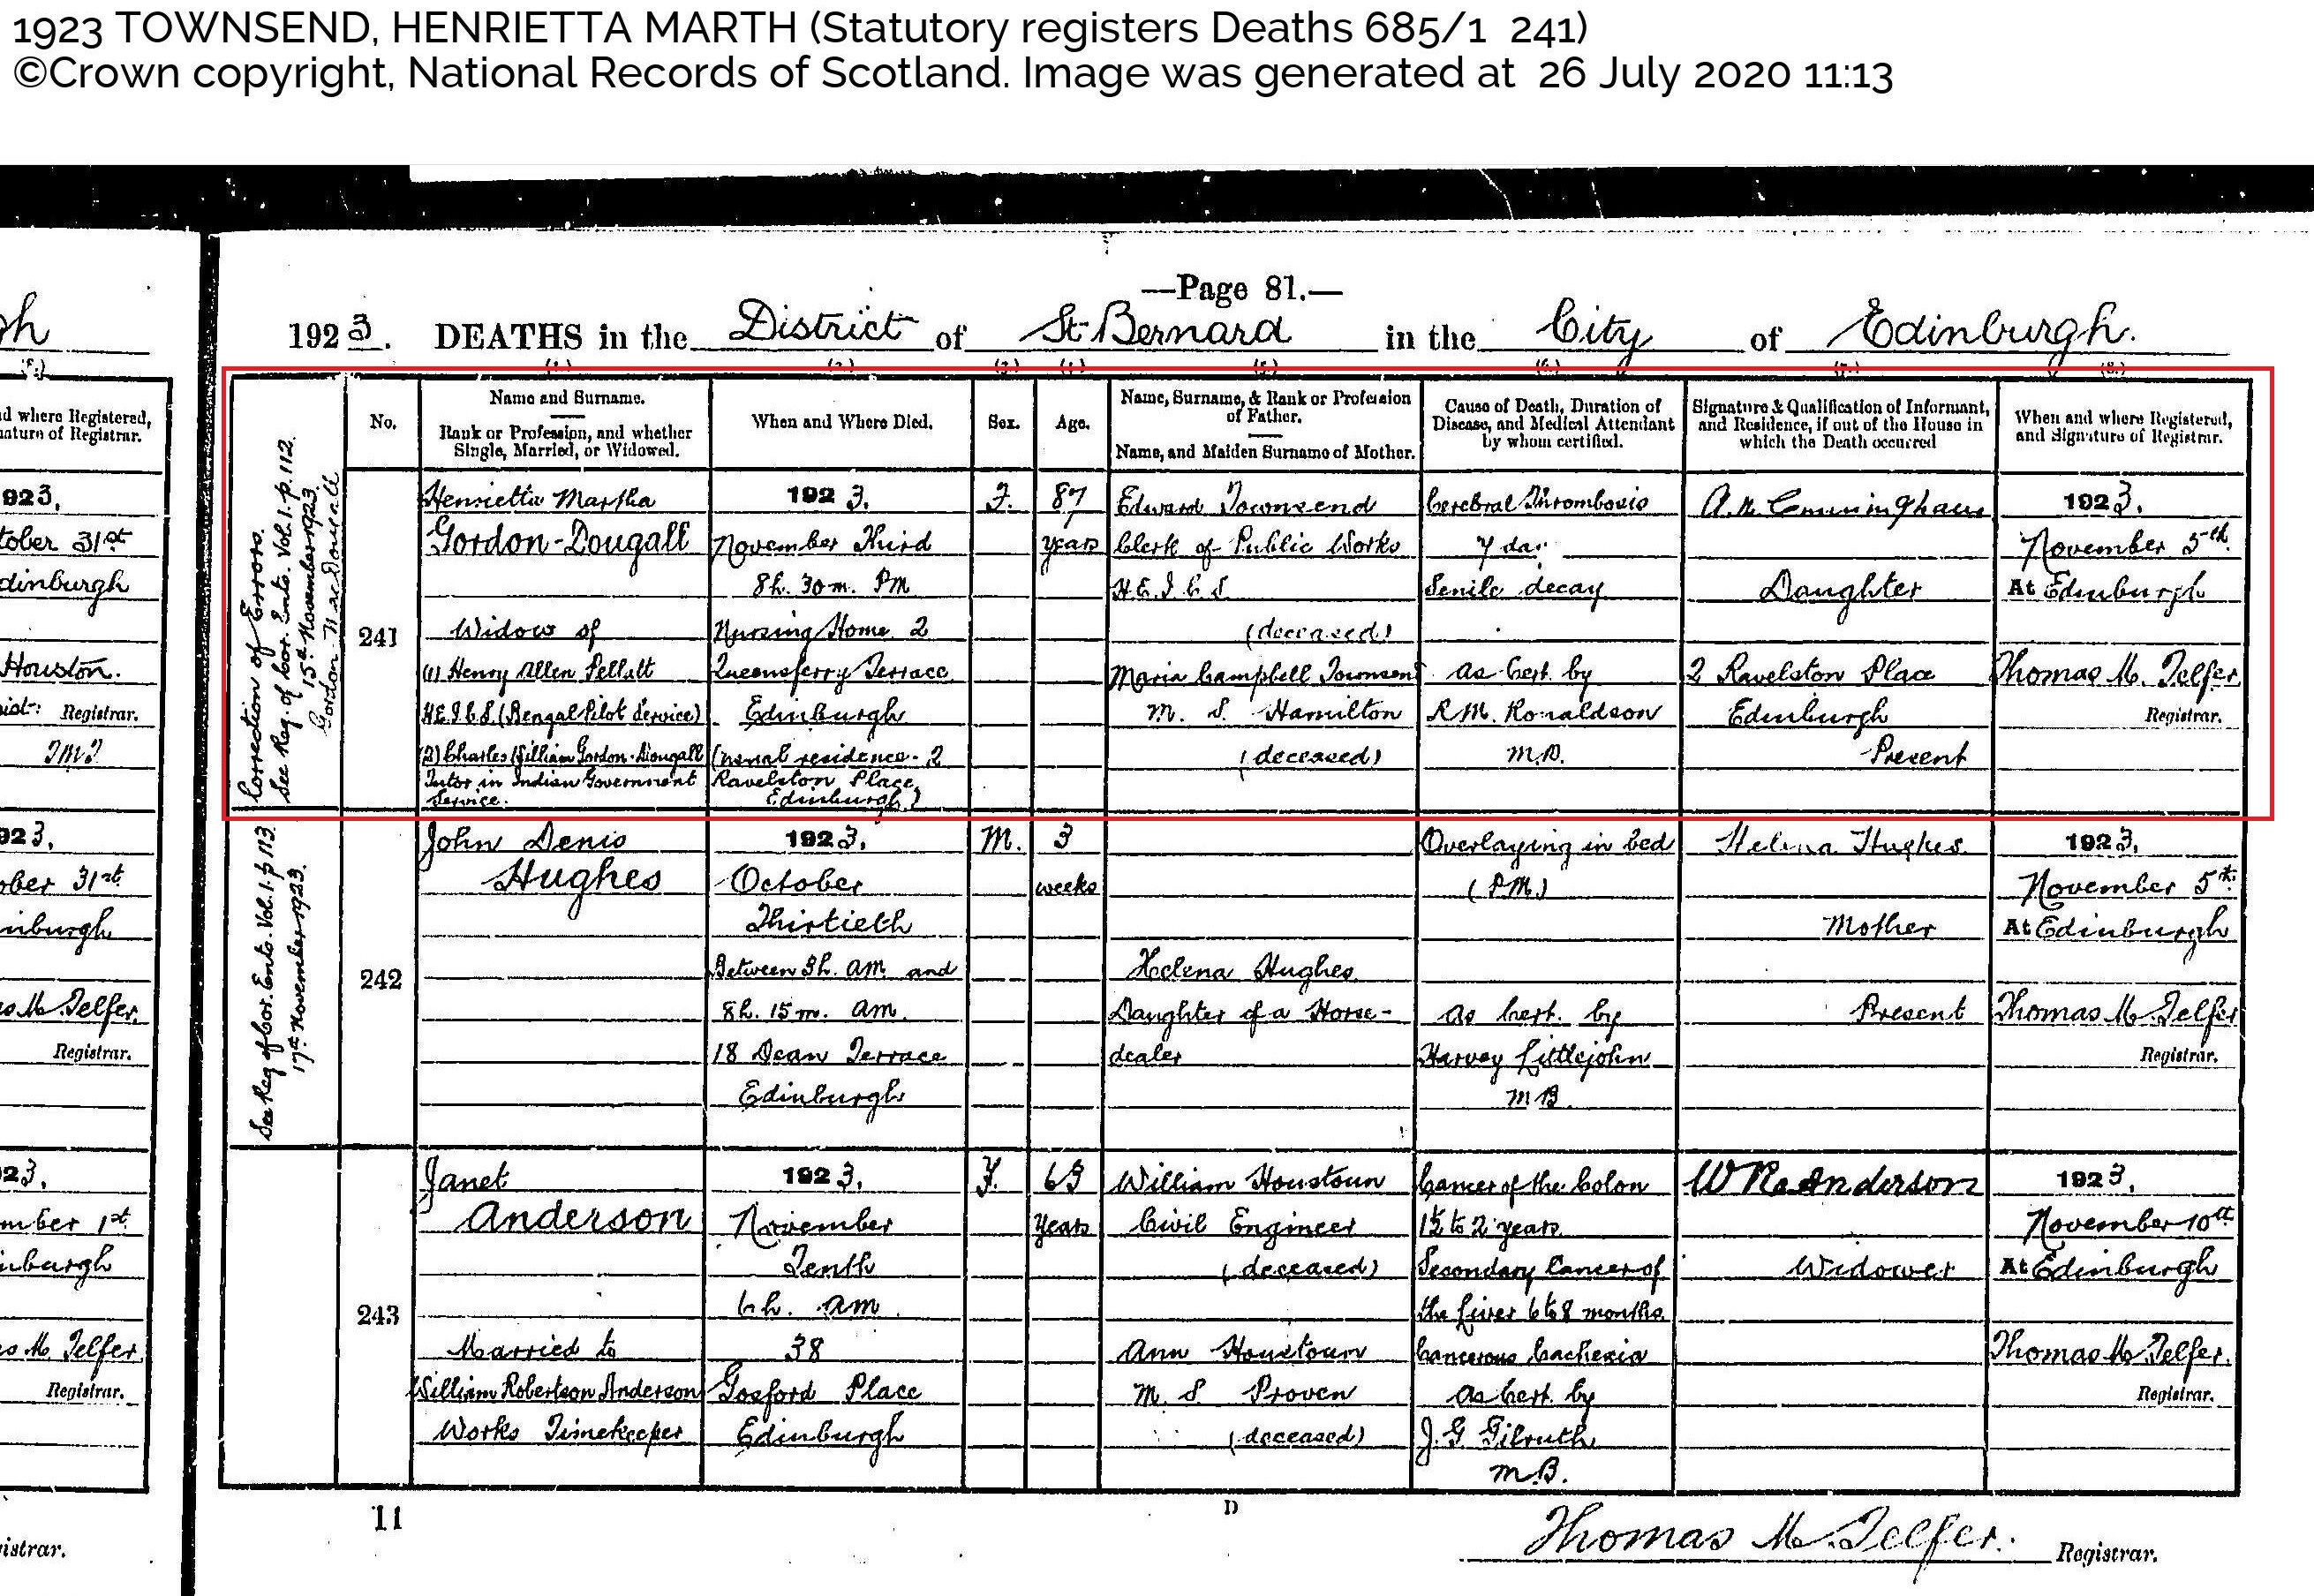 1923 TOWNSEND, HENRIETTA MARTH (Statutory registers Deaths 685/1 241)
©Crown copyright, National Records of Scotland. Image was generated at 26 July 2020 11:13
—Page 81.—
1923. DEATHS in the District of St Bernard in the City of Edinburgh.
(1.) (2.) (3.) (4.) (5.) (6.) (7.) (8.)
No.
Name and Surname.
Rank or Profession, and whether
Single, Married, or Widowed.
When and Where Died.
Sex.
Age.
Name, Surname, & Rank or Profession
of Father.
Name, and Maiden Surname of Mother.
Cause of Death, Duration of
Disease, and Medical Attendant
by whom certified.
Signature & Qualification of Informant,
and Residence, if out of the House in
which the Death occurred
When and where Registered,
and Signature of Registrar.
Correction of Errors.
See Reg. of Cor. Ents. Vol. 1. p. 112.
15th November 1923.
Gordon MacDougall
241
Henrietta Martha
Gordon-Dougall
Widow of
(1) Henry Allen Pellatt
H.E.I.C.S. (Bengal Pilot Service)
(2) Charles William Gordon-Dougall
Tutor in Indian Government
Service.
1923.
November Third
8h. 30m. PM
Nursing Home 2
Queensferry Terrace
Edinburgh
(usual residence - 2
Ravelston Place
Edinburgh)
F.
87
years
Edward Townsend
Clerk of Public Works
H.E.I.C.S.
(deceased)
Maria Campbell Townsend
M. S. Hamilton
(deceased)
Cerebral Thrombosis
7 da
Senile decay
As Cert. by
R.M. Ronaldson
M.D.
A. M. Cunningham
Daughter
2 Ravelston Place
Edinburgh
Present
1923.
November 5th
At Edinburgh
Thomas M. Telfer
Registrar.
See Reg of Cor. Ents. Vol. 1. p 113
17th November 1923.
242
John Denis
Hughes
1923.
October
Thirtieth
Between 3h. AM and
8h. 15m. AM.
18 Dean Terrace
Edinburgh
M.
3
weeks
Helena Hughes
Daughter of a Horse-
dealer
Overlaying in bed
(P.M.)
As Cert. by
Harvey Littlejohn
M B.
Helena Hughes.
Mother
Present
1923.
November 5th
At Edinburgh
Thomas M. Telfer
Registrar.
243
Janet
Anderson
Married to
William Robertson Anderson
Works Timekeeper
1923.
November
Tenth
6h. AM.
38
Gosford Place
Edinburgh
F.
63
years
William Houstoun
Civil Engineer
(deceased)
Ann Houstoun
M. S. Proven
(deceased)
Cancer of the Colon
1½ to 2 years
Secondary Cancer of
the liver 6 to 8 months.
Cancerous Cachexia
As Cert. by
J. G. Gilruth
M.B.
W R Anderson
Widower
1923.
November 10th
At Edinburgh
Thomas M. Telfer.
Registrar.
11
D
Thomas M. Telfer. Registrar.